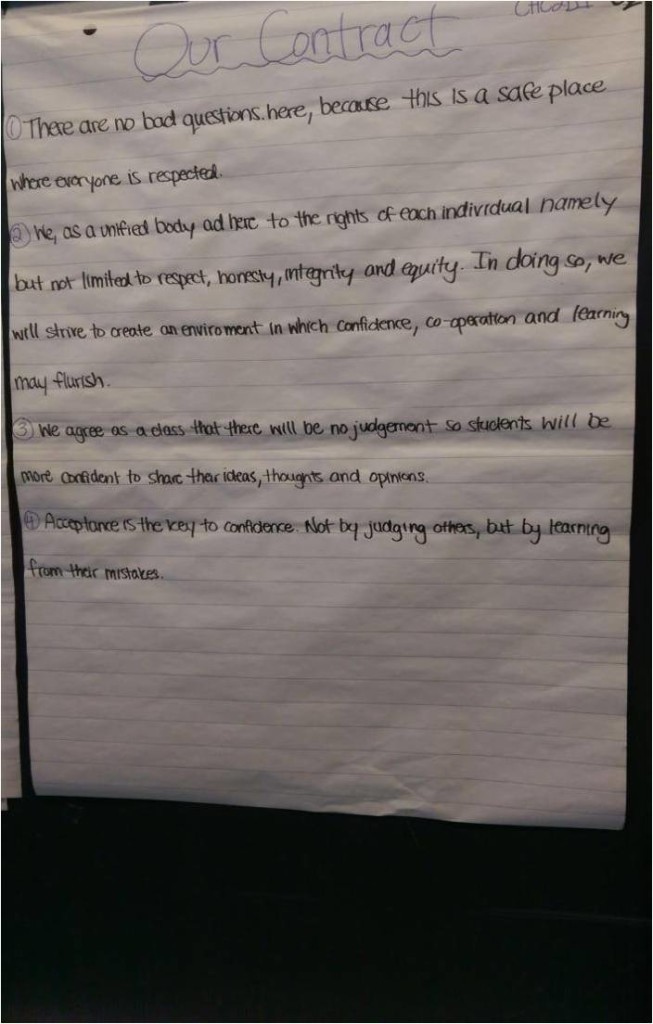 Our Contract
① There are no bad questions here, because this is a safe place
where everyone is respected.
② We, as a unified body ad here to the rights of each individual namely
but not limited to respect, honesty, integrity and equity. In doing so, we
will strive to create an enviroment in which confidence, co-operation and learning
may flurish.
③ We agree as a class that there will be no judgement so students will be
more confident to share their ideas, thoughts and opinions.
④ Acceptance is the key to confidence. Not by judging others, but by learning
from their mistakes.